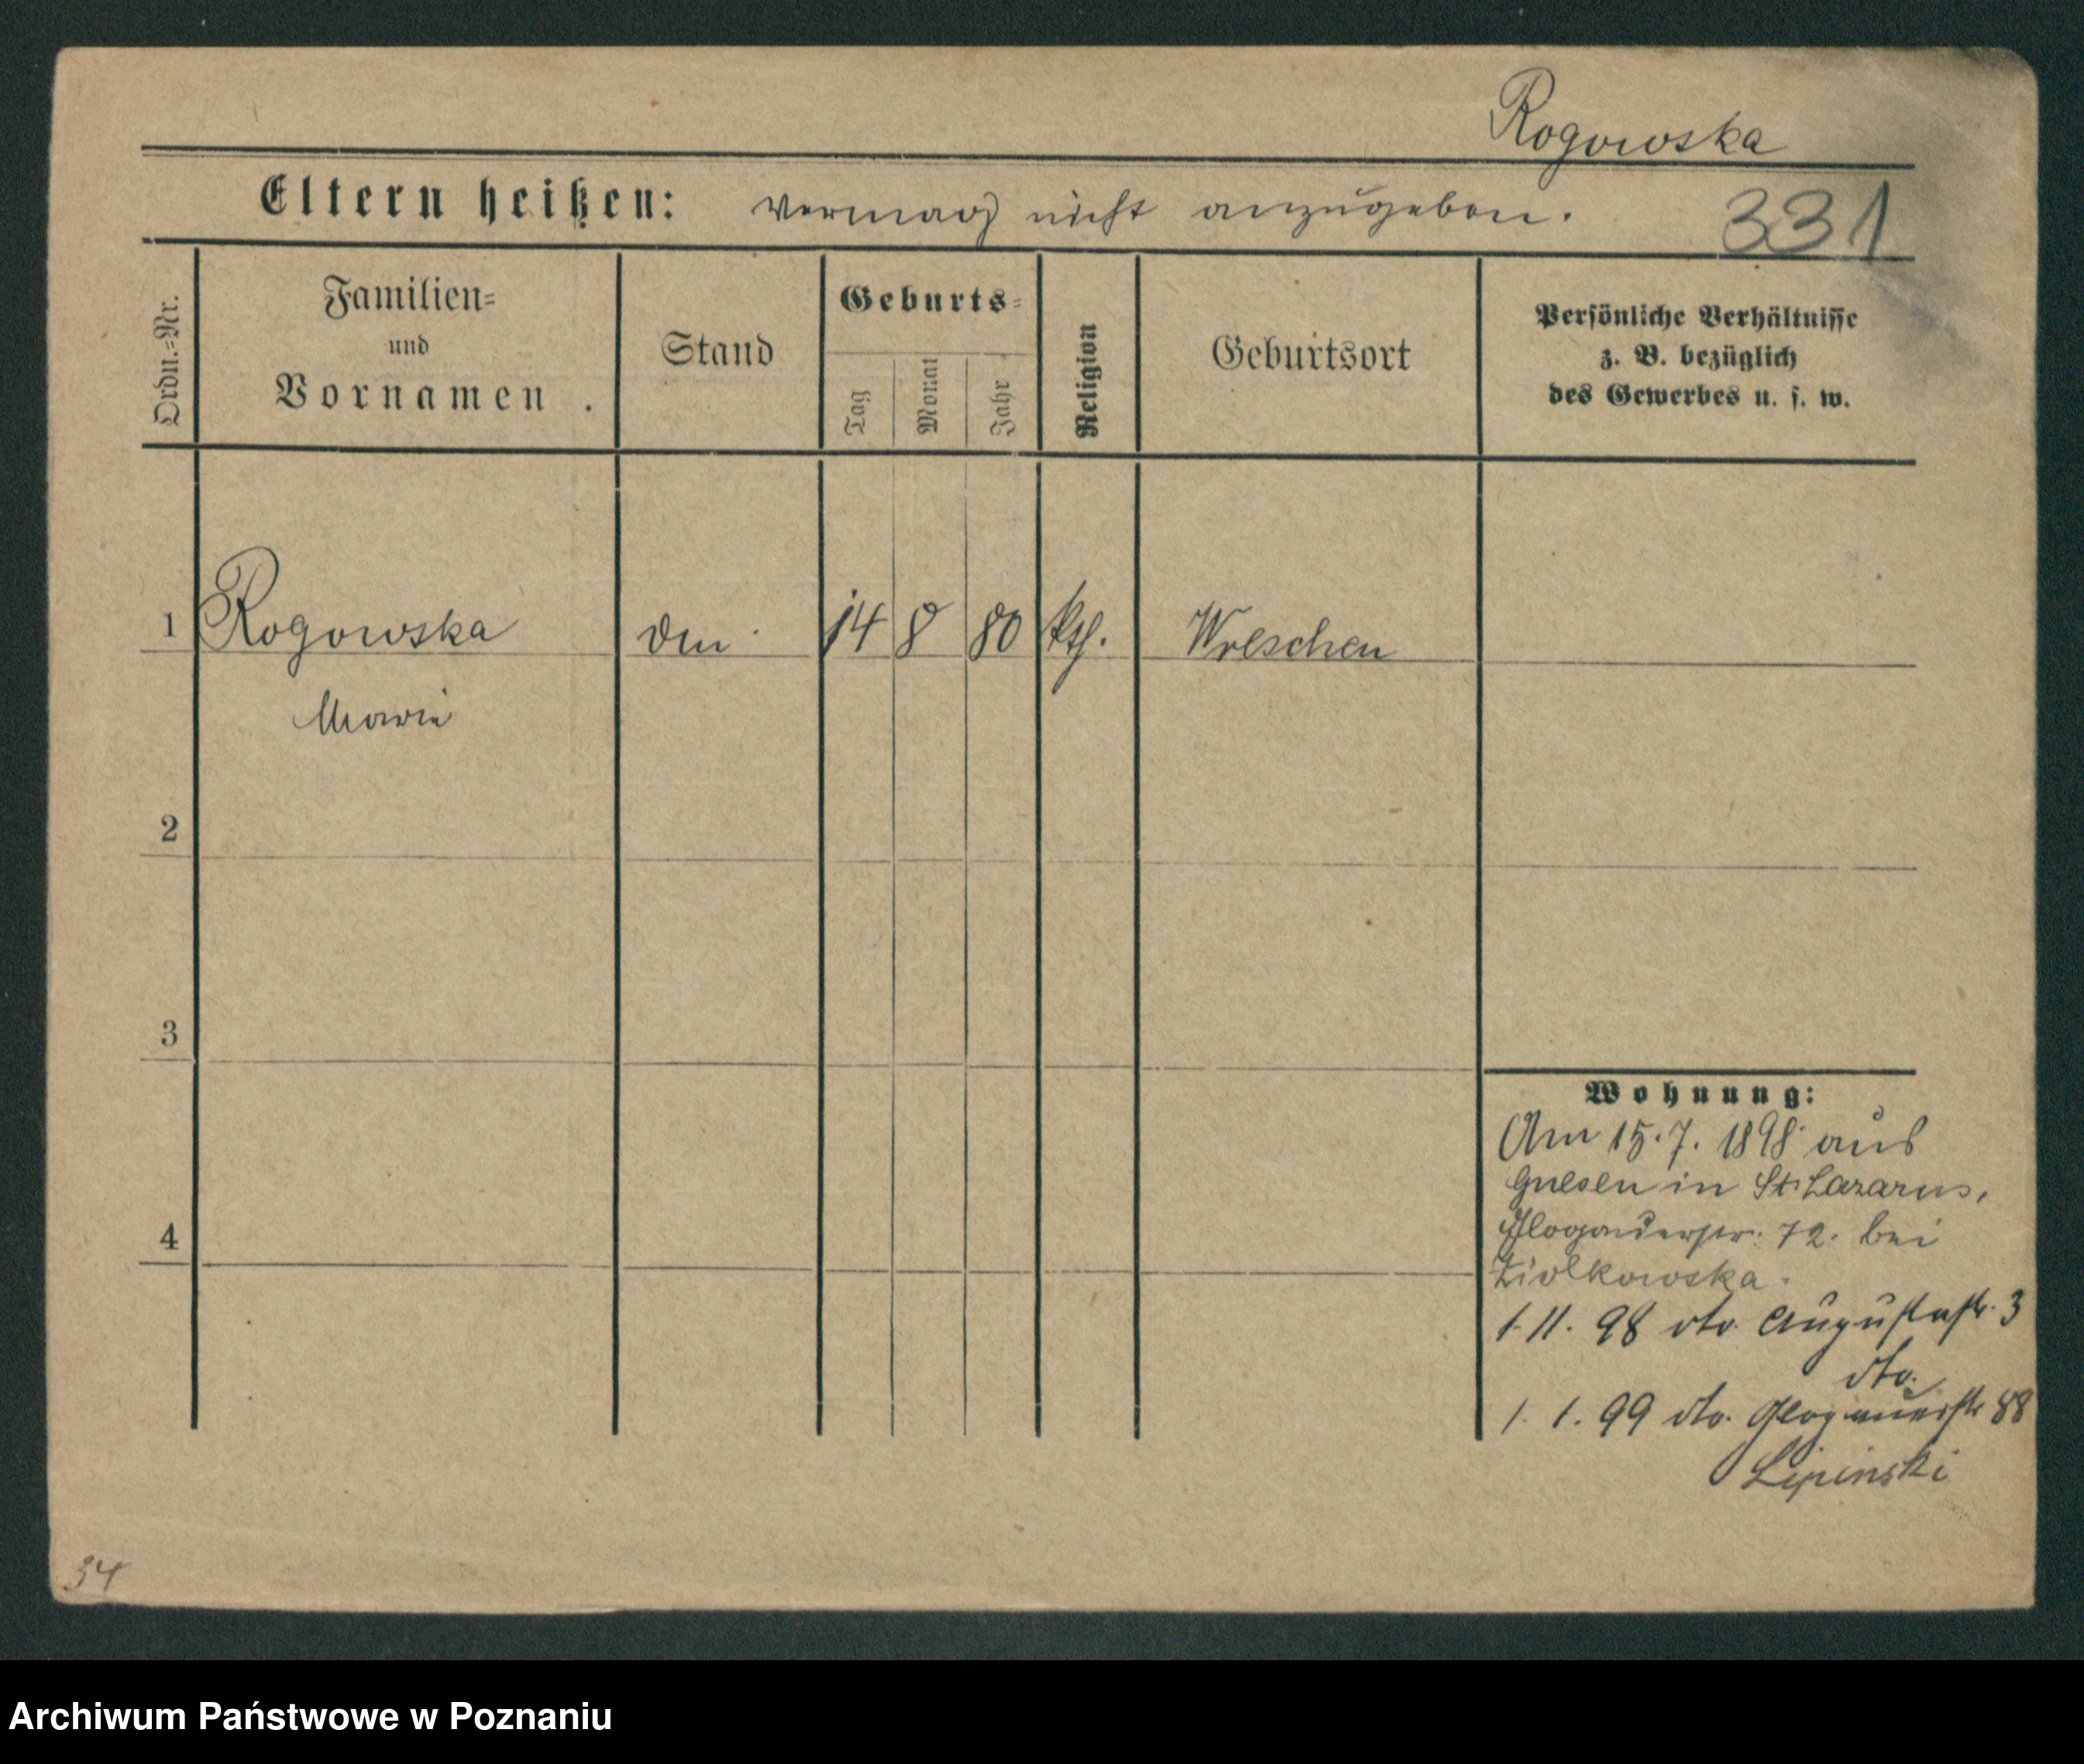 Rogowska
Eltern heißen: vermag nicht anzugeben.
331
Ordn.=Nr.
Familien=
und
Vornamen.
Stand
Geburts=
Tag
Monat
Jahr
Religion
Geburtsort
Persönliche Verhältnisse
z. B. bezüglich
des Gewerbes u. s. w.
1 Rogowska 14 8 80 kth. Wreschen
Marie
2
3
4
Wohnung:
Am 15.7. 1898 aus
Gnesen in St. Lazarus,
Glogauerstr. 72. bei
Ziolkowska.
1.11. 98 dto. Augustastr. 3
dto.
1. 1. 99 dto. Glogauerstr 88
Lipinski
34
Archiwum Państwowe w Poznaniu